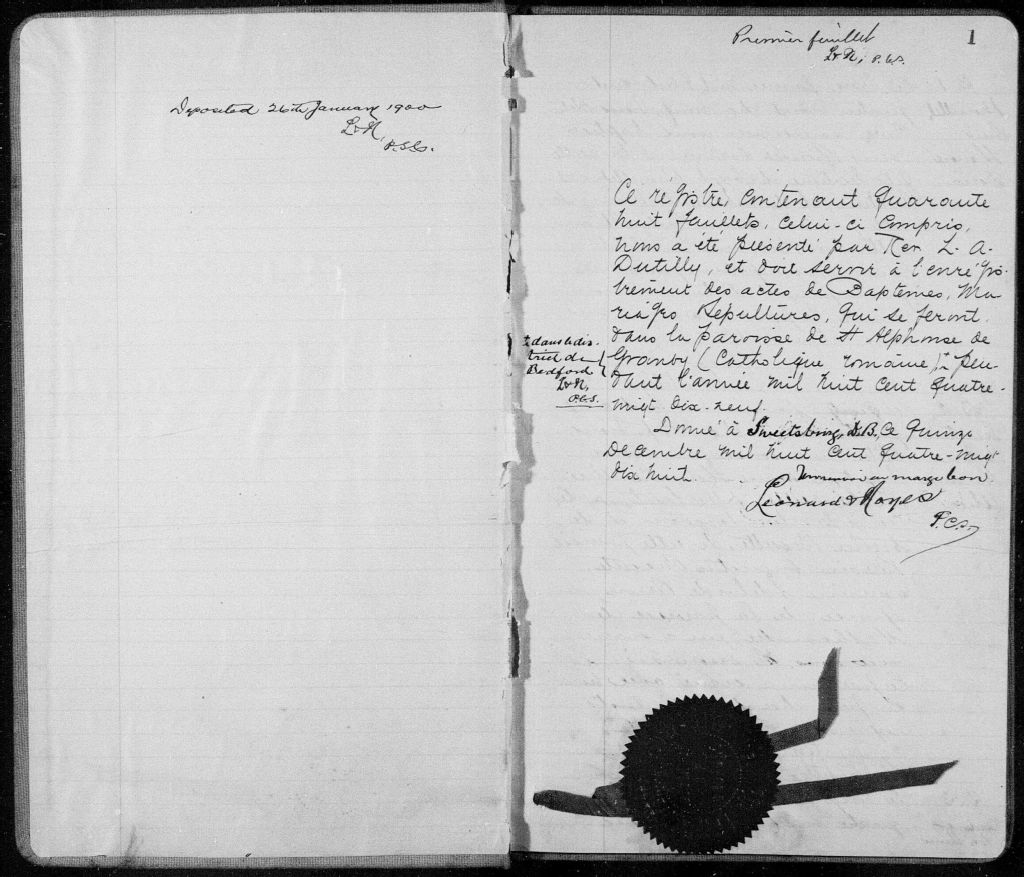 Deposited 26th January 1900
L & N,
P.S.C.
Premier feuillet
L & N, P.C.S.
1
Ce régistre, contenant quarante
huit feuillets, celui-ci compris,
nous a été présenté par Rev L. A.
Dutilly, et doit servir à l'enrégis-
trement des actes de Baptemes, Ma
riages Sépultures, qui se feront
dans la paroisse de St Alphonse de
Granby (Catholique romaine) pen-
dant l'année mil huit cent quatre-
vingt dix-neuf.
& dans le dis-
trict de
Bedford
L & N,
P.C.S.
Donné à Sweetsburg, D.B, ce quinze
Decembre mil huit cent quatre-vingt
dix huit.
en marge bon
Leonard & Noyes
P.C.S.